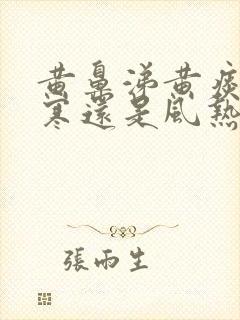 黄鼻涕黄痰
寒還是風熱
張雨生